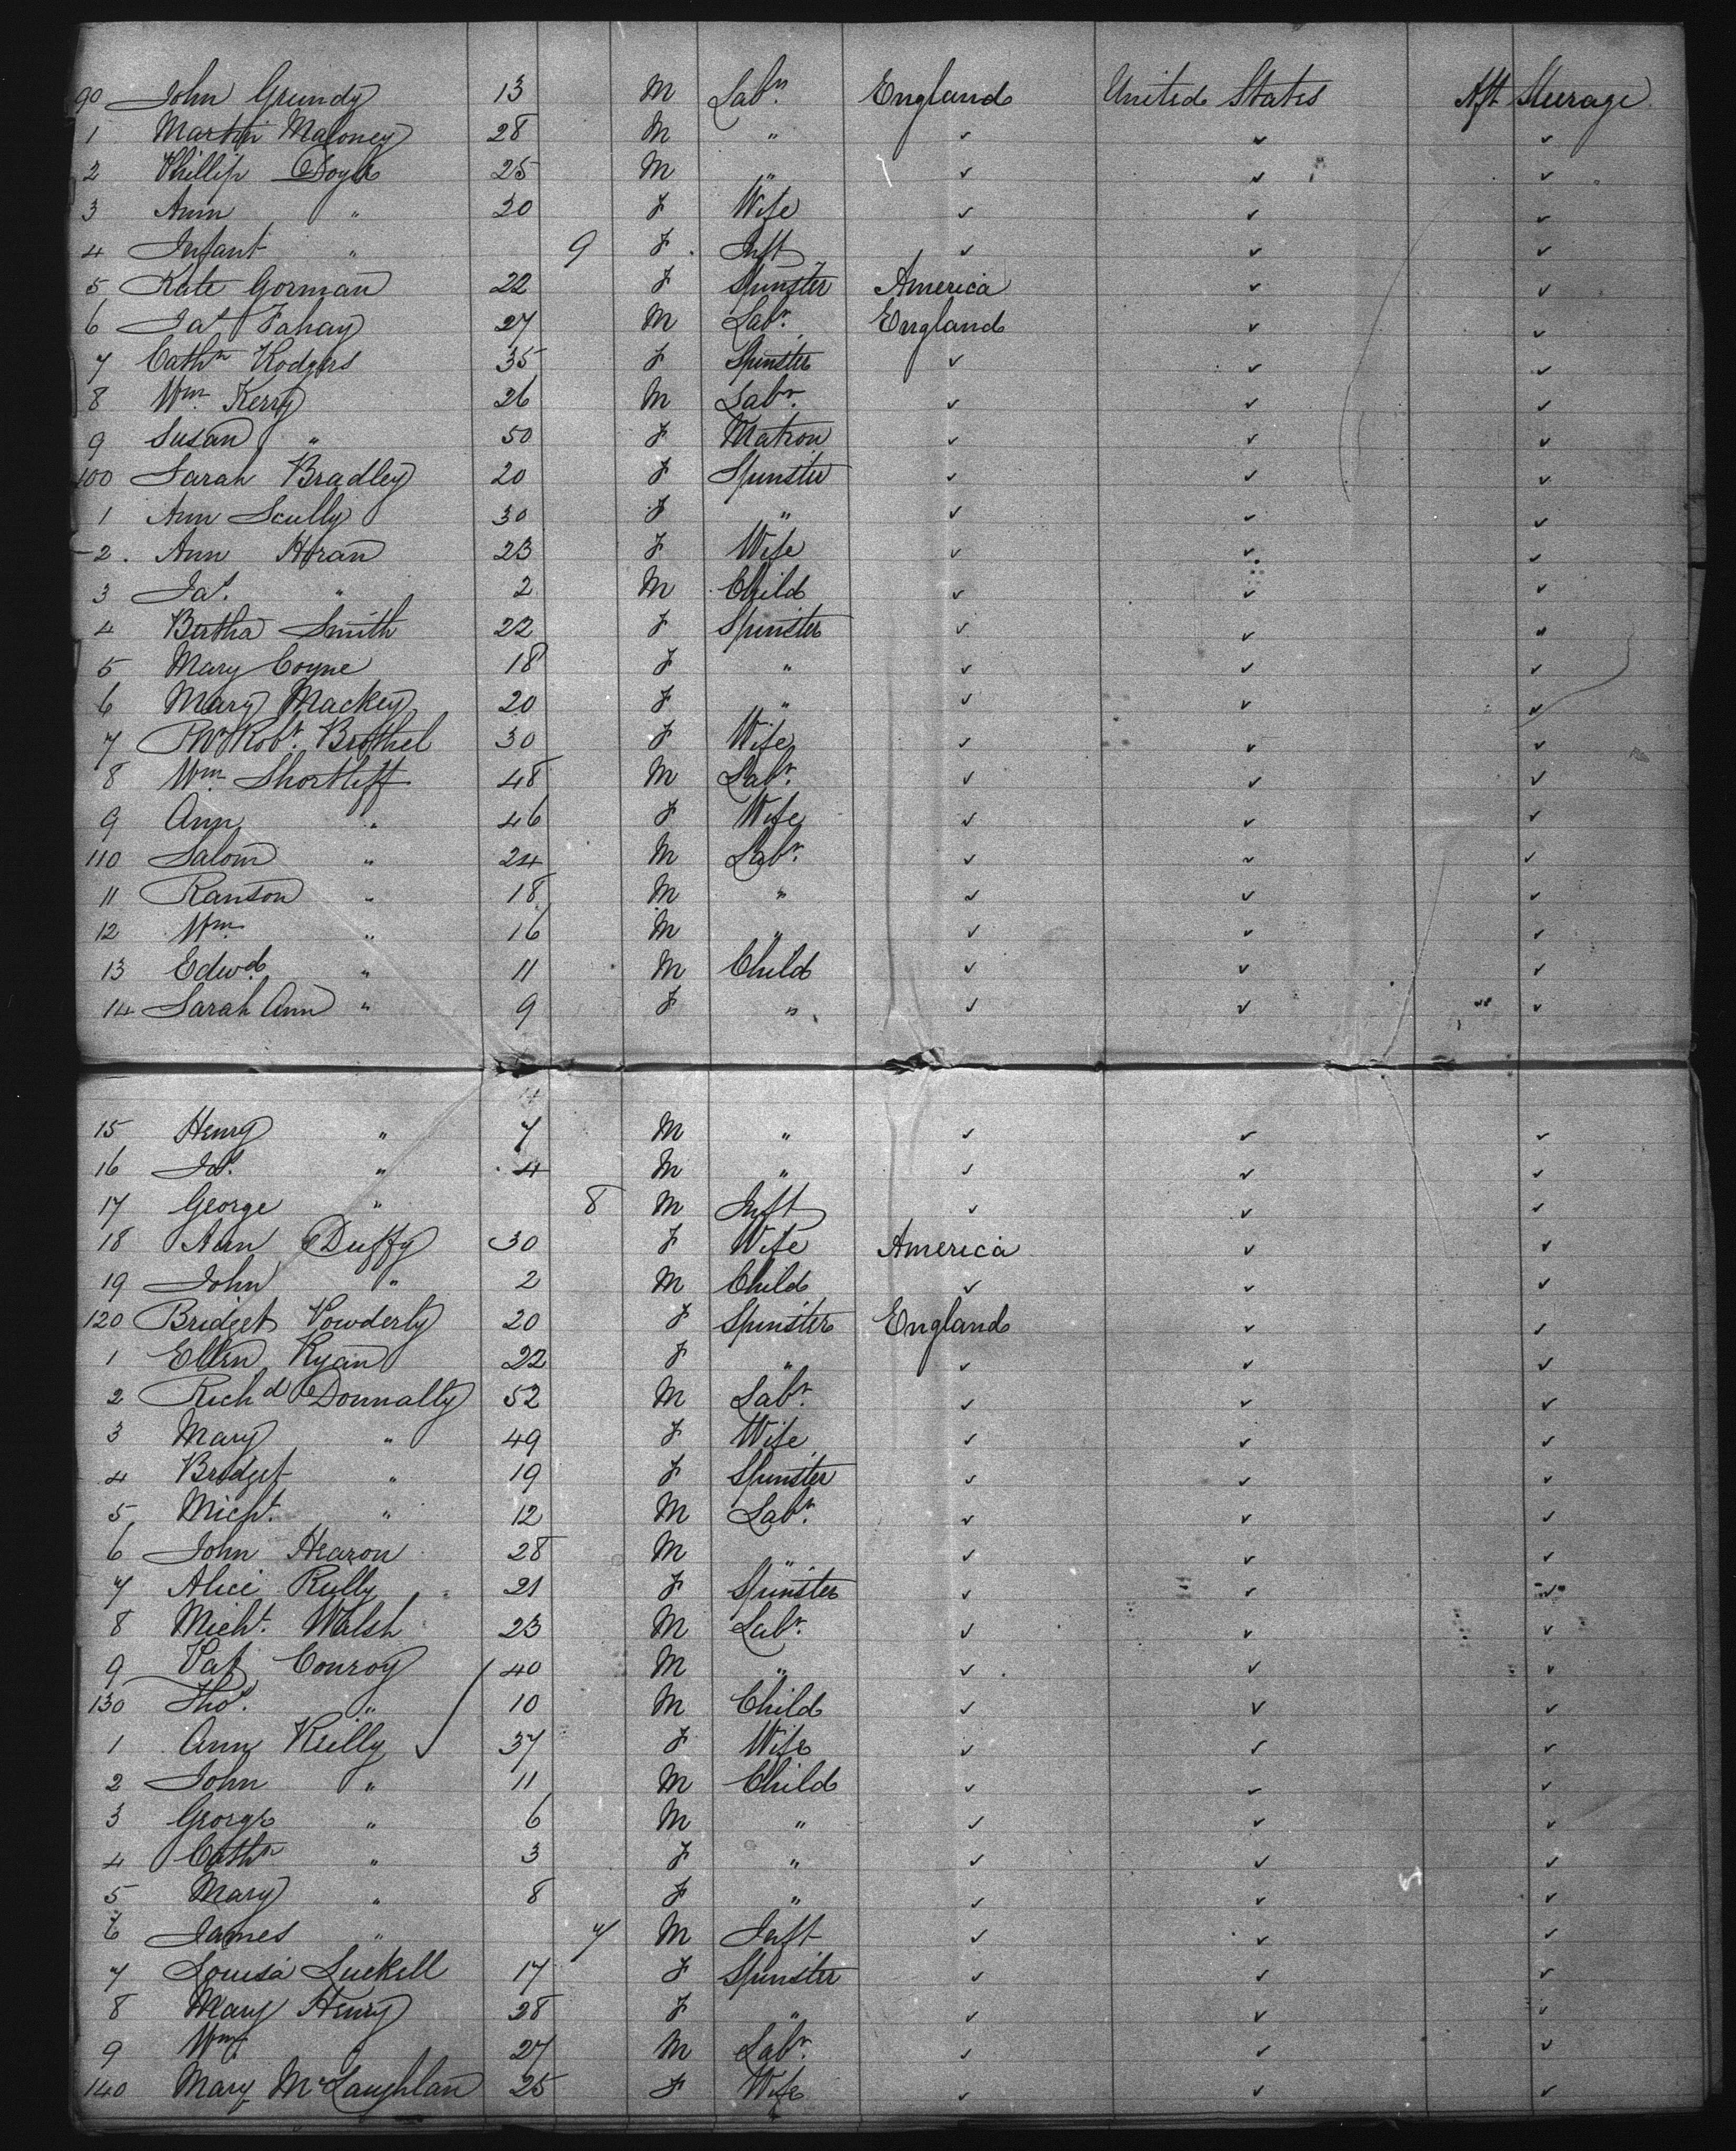 90 John Grundy 13 M Labr. England United States Aft Steerage
1 Martin Maloney 28 M " ✓ ✓ ✓
2 Phillip Doyle 25 M " ✓ ✓ ✓
3 Ann " 20 F Wife ✓ ✓ ✓
4 Infant " 9 F Inft ✓ ✓ ✓
5 Kate Gorman 22 F Spinster America ✓ ✓
6 Jas Fahay 27 M Labr. England ✓ ✓
7 Cathn Rodgers 35 F Spinster ✓ ✓ ✓
8 Wm. Kerry 26 M Labr. ✓ ✓ ✓
9 Susan " 50 F Matron ✓ ✓ ✓
100 Sarah Bradley 20 F Spinster ✓ ✓ ✓
1 Ann Scully 30 F " ✓ ✓ ✓
2 Ann Horan 23 F Wife ✓ ✓ ✓
3 Jas. " 2 M Child ✓ ✓ ✓
4 Bertha Smith 22 F Spinster ✓ ✓ "
5 Mary Coyne 18 F " ✓ ✓ ✓
6 Mary Mackey 20 F " ✓ ✓ ✓
7 Robt. Brothel 30 F Wife ✓ ✓ ✓
8 Wm. Shortliff 48 M Labr. ✓ ✓ ✓
9 Ann " 46 F Wife ✓ ✓ ✓
110 Salom " 24 M Labr. ✓ ✓ ✓
11 Ranson " 18 M " ✓ ✓ ✓
12 Wm. " 16 M " ✓ ✓ ✓
13 Edwd. " 11 M Child ✓ ✓ ✓
14 Sarah Ann " 9 F " ✓ ✓ ✓
15 Henry " 7 M " ✓ ✓ ✓
16 Jas. " 4 M " ✓ ✓ ✓
17 George " 8 M Inft ✓ ✓ ✓
18 Ann Duffy 30 F Wife America ✓ ✓
19 John " 2 M Child ✓ ✓ ✓
120 Bridget Powderly 20 F Spinster England ✓ ✓
1 Ellen Ryan 22 F " ✓ ✓ ✓
2 Richd Donnally 52 M Labr. ✓ ✓ ✓
3 Mary " 49 F Wife ✓ ✓ ✓
4 Bridget " 19 F Spinster ✓ ✓ ✓
5 Michl. " 12 M Labr. ✓ ✓ ✓
6 John Hearon 28 M " ✓ ✓ ✓
7 Alice Reilly 21 F Spinster ✓ ✓ ✓
8 Michl. Walsh 23 M Labr. ✓ ✓ ✓
9 Pat Conroy 40 M " ✓ ✓ ✓
130 Thos. " 10 M Child ✓ ✓ ✓
1 Ann Reilly 37 F Wife ✓ ✓ ✓
2 John " 11 M Child ✓ ✓ ✓
3 George " 6 M " ✓ ✓ ✓
4 Cathn " 3 F " ✓ ✓ ✓
5 Mary " 8 F " ✓ ✓ ✓
6 James " 7 M Inft ✓ ✓ ✓
7 Louisa Luckell 17 F Spinster ✓ ✓ ✓
8 Mary Henry 28 F " ✓ ✓ ✓
9 Wm. " 27 M Labr. ✓ ✓ ✓
140 Mary McLaughlan 25 F Wife ✓ ✓ ✓